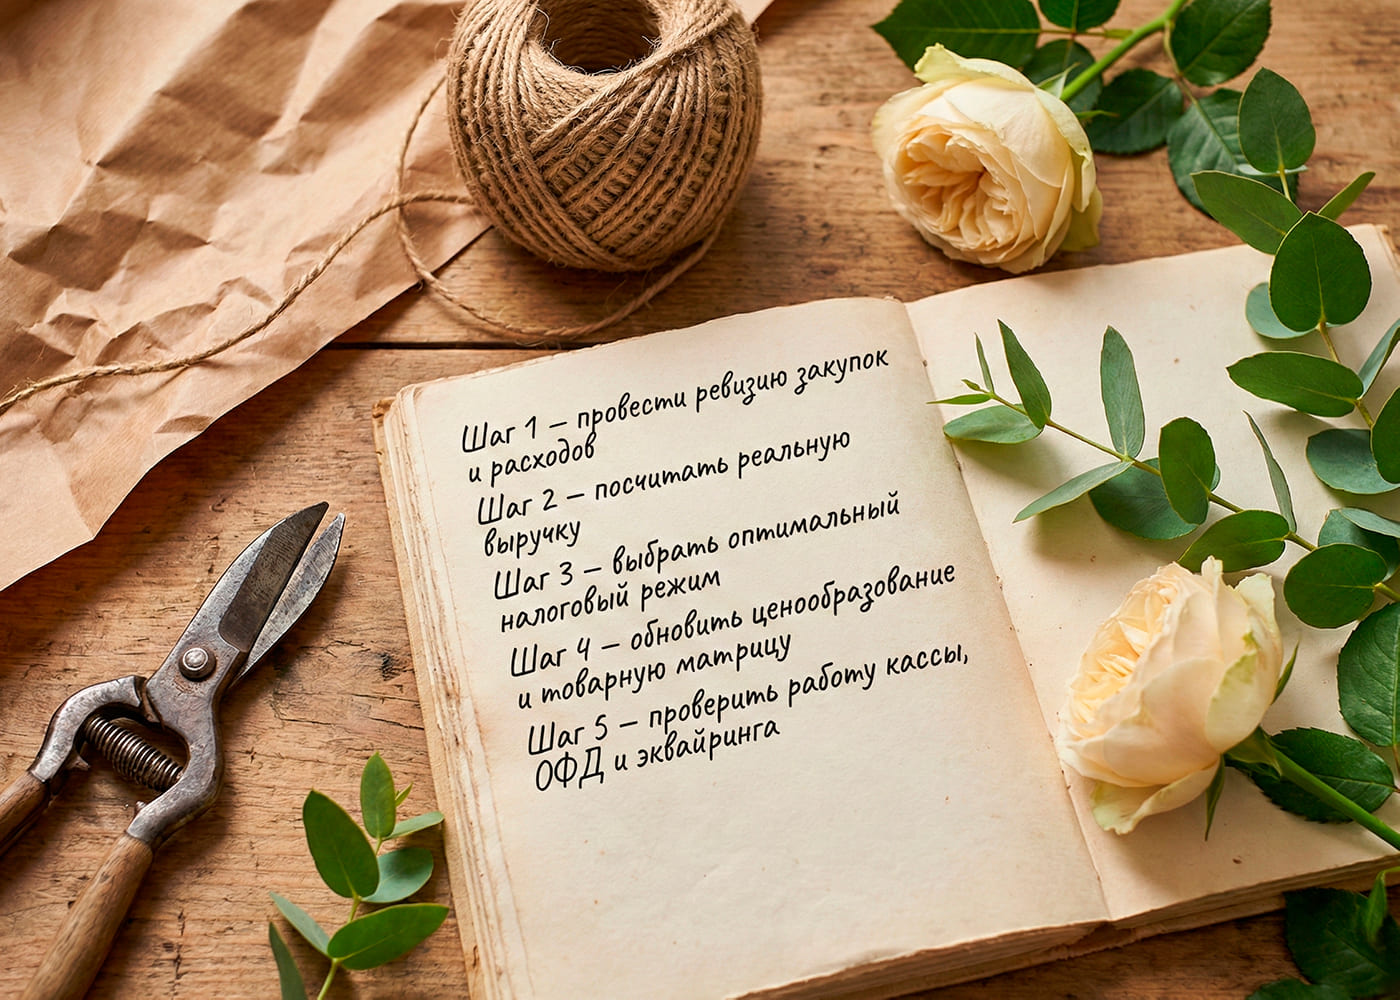 Шаг 1 – провести ревизию закупок
и расходов
Шаг 2 – посчитать реальную
выручку
Шаг 3 – выбрать оптимальный
налоговый режим
Шаг 4 – обновить ценообразование
и товарную матрицу
Шаг 5 – проверить работу кассы,
ОФД и эквайринга